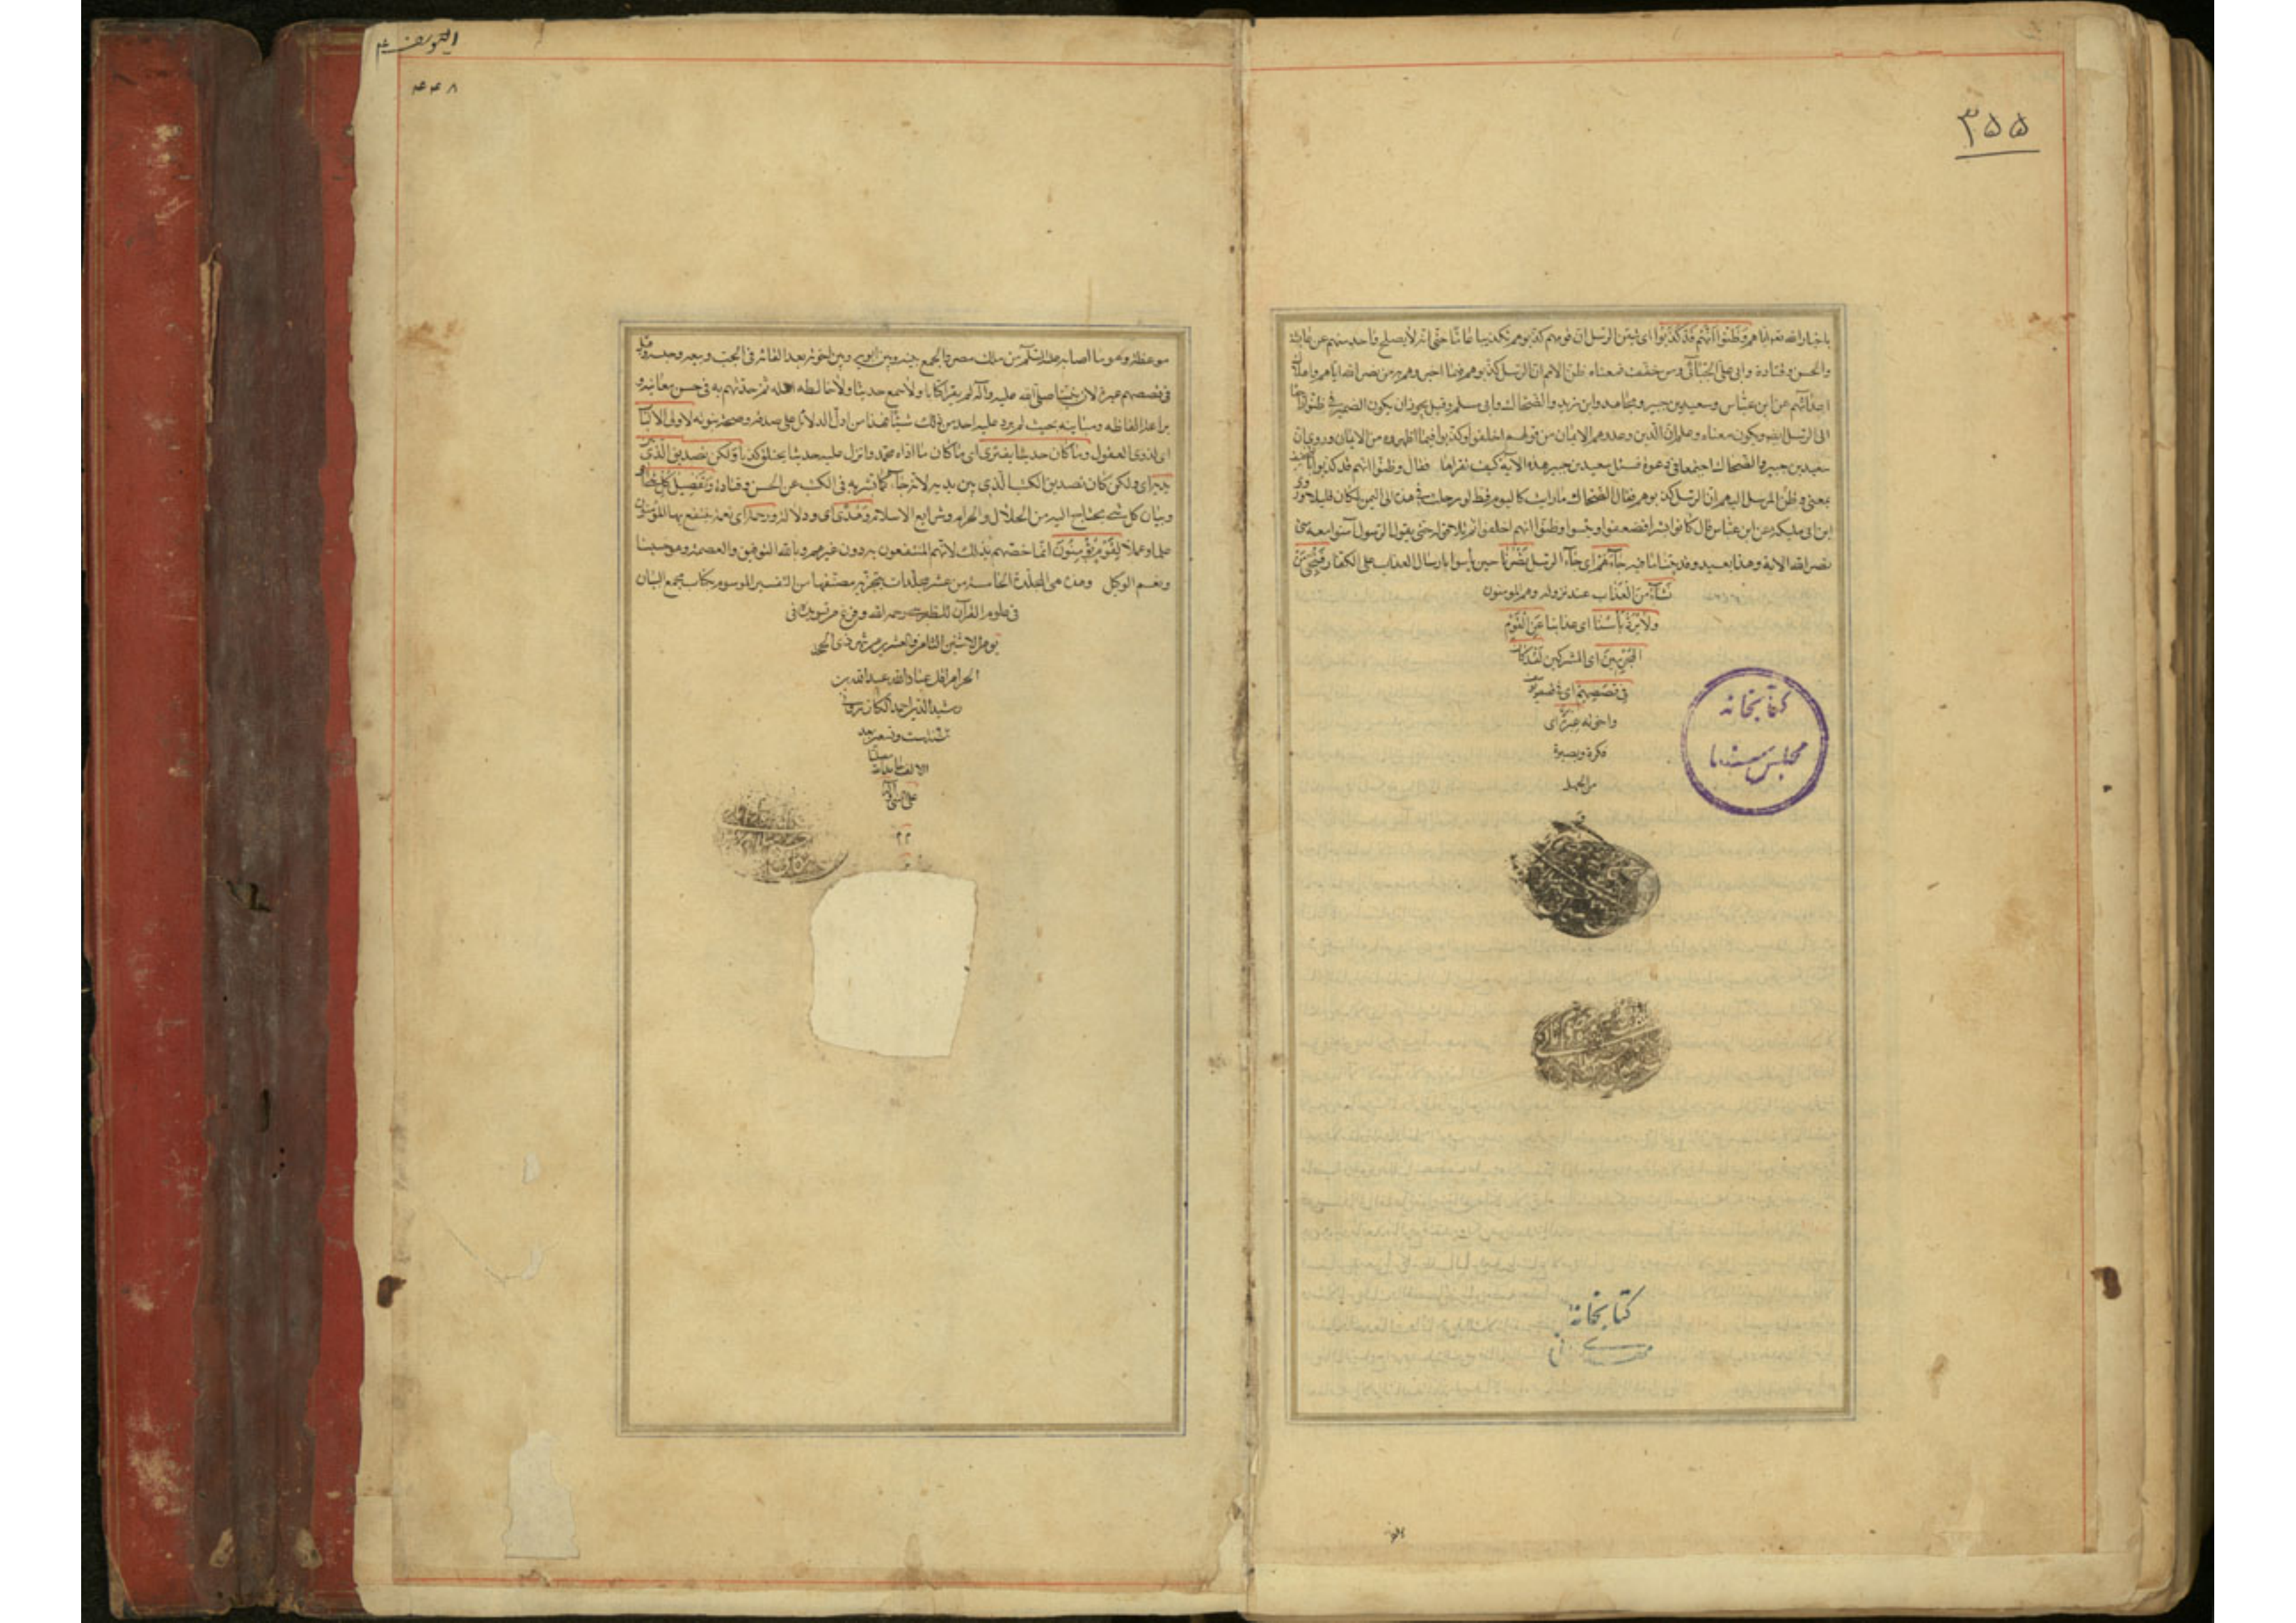 ۳۵۵
باخبار الله تعالى اياهم وظنوا انهم قد كذبوا اى تيقن الرسل ان قومهم كذبوهم تكذيبا عاما حتى انه لا يصلح واحد منهم عن عائشة
والحسن وقتادة وابى على الجبائى ومن خفف فمعناه ظن الامم ان الرسل كذبوهم فيما اخبروهم به من نصر الله اياهم واهلاك
اعدائهم عن ابن عباس وسعيد بن جبير ومجاهد وابن زيد والضحاك وابى مسلم وقيل يجوز ان يكون الضمير فى ظنوا راجعا
الى الرسل ايضا ويكون معناه وعلموا ان الذين وعدوهم الايمان من قومهم اخلفوا وكذبوا فيما اظهروه من الايمان وروى ان
سعيد بن جبير والضحاك اجتمعا فى دعوة فسئل سعيد بن جبير هذه الآية كيف تقراها فقال وظنوا انهم قد كذبوا بالتخفيف
بمعنى وظن المرسل اليهم ان الرسل كذبوهم فقال الضحاك ما رايت كاليوم قط لو رحلت فى هذه الى اليمن لكان قليلا وروى
ابن ابى مليكة عن ابن عباس قال كانوا بشرا فضعفوا ويئسوا وظنوا انهم اخلفوا ثم تلا حتى يقول الرسول والذين آمنوا معه متى
نصر الله الاية وهذا بعيد وقد بينا ما فيه جاءهم اى جاء الرسل نصرنا حين يأسوا بارسال العذاب على الكفار فنجى من
نشاء من العذاب عند نزوله وهم المومنون
ولا يرد بأسنا اى عذابنا عن القوم
المجرمين اى المشركين لقد كان
فى قصصهم اى فى قصة يوسف
واخوته عبرة اى
فكرة وبصيرة
من الجهل
و
كتابخانه
مجلس سنا
كتابخانه
اليوسف
۴۴۸
موعظة وهو ما اصابه عليه السلم من ملك مصر والجمع بينه وبين ابويه وبين اخوته بعد القائه فى الجب وبيعه وحبسه وقيل
فى قصصهم عبرة لان نبينا صلى الله عليه وآله لم يقرا كتابا ولا سمع حديثا ولا خالط اهله ثم حدثهم به فى حسن معانيه و
براعة الفاظه ومبانيه بحيث لم يرد عليه احد من ذلك شيئا فهذا من ادل الدلائل على صدقه وصحة نبوته لاولى الالباب
اى لذوى العقول وما كان حديثا يفترى اى ما كان ما اداه محمد وانزل عليه حديثا يختلق كذبا ولكن تصديق الذى بين
يديه اى ولكن كان تصديق الكتب الذى بين يديه لانه جاء كما بشر به فى الكتب عن الحسن وقتادة وتفصيل كل شئ اى
وبيان كل شئ يحتاج اليه من الحلال والحرام وشرايع الاسلام وهدى اى ودلالة ورحمة اى نعمة ينتفع بها المؤمنون
علما وعملا لقوم يؤمنون انما خصهم بذلك لانهم المنتفعون به دون غيرهم وبالله التوفيق والعصمة وهو حسبنا
ونعم الوكيل وهذه هى المجلدة الخامسة من عشر مجلدات بتجزية مصنفها من التفسير الموسوم بكتاب مجمع البيان
فى علوم القرآن للطبرسى رحمه الله وفرغ من تسويده فى
يوم الاثنين الثامن والعشرين من شهر ذى الحجة
الحرام اقل عباد الله عبد الله بن
رشيد الدين احمد
سنة ست وتسعين بعد
الالف